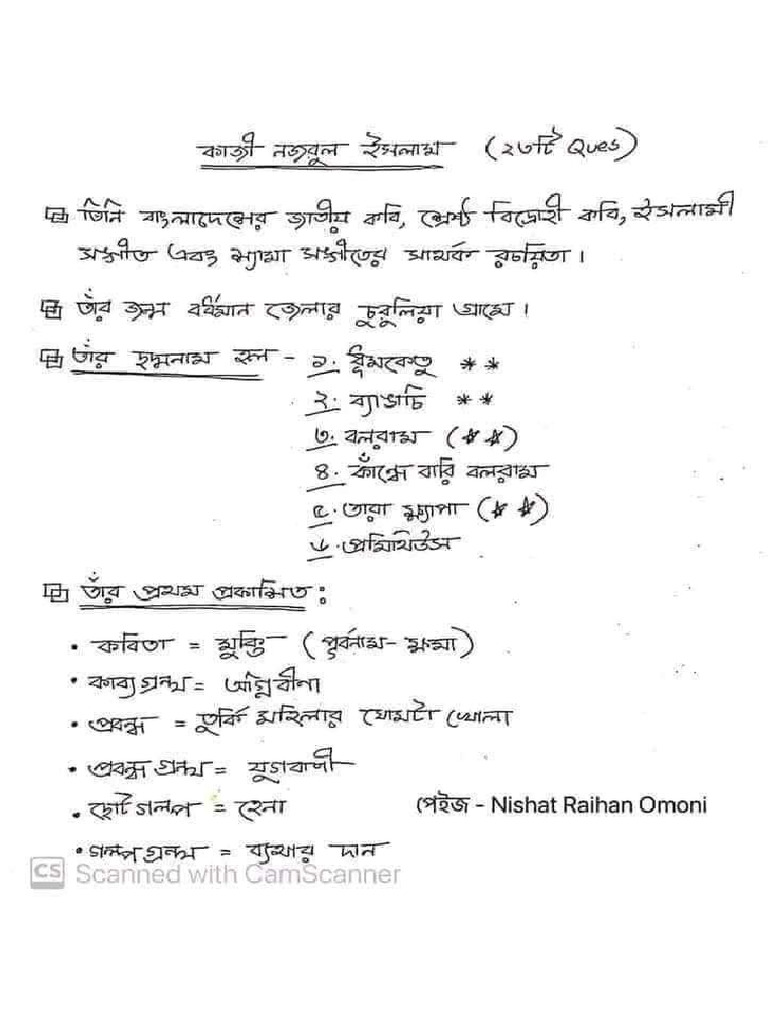 কাজী নজরুল ইসলাম (২৩টি Ques)
তিনি বাংলাদেশের জাতীয় কবি, শ্রেষ্ঠ বিদ্রোহী কবি, ইসলামী
সঙ্গীত এবং শ্যামা সঙ্গীতের সার্থক রচয়িতা।
তাঁর জন্ম বর্ধমান জেলার চুরুলিয়া গ্রামে।
তাঁর ছদ্মনাম হল - ১. ধূমকেতু **
২. ব্যাঙাচি **
৩. বলরাম (**)
৪. কাঁন্ধে বারি বলরাম
৫. তারা ক্ষ্যাপা (**)
৬. প্রমিথিউস
তাঁর প্রথম প্রকাশিত :
• কবিতা = মুক্তি (পূর্বনাম- ক্ষমা)
• কাব্যগ্রন্থ = অগ্নিবীণা
• প্রবন্ধ = তুর্কি মহিলার ঘোমটা খোলা
• প্রবন্ধ গ্রন্থ = যুগবাণী
• ছোট গল্প = হেনা পেইজ - Nishat Raihan Omoni
• গল্পগ্রন্থ = ব্যথার দান
CS Scanned with CamScanner